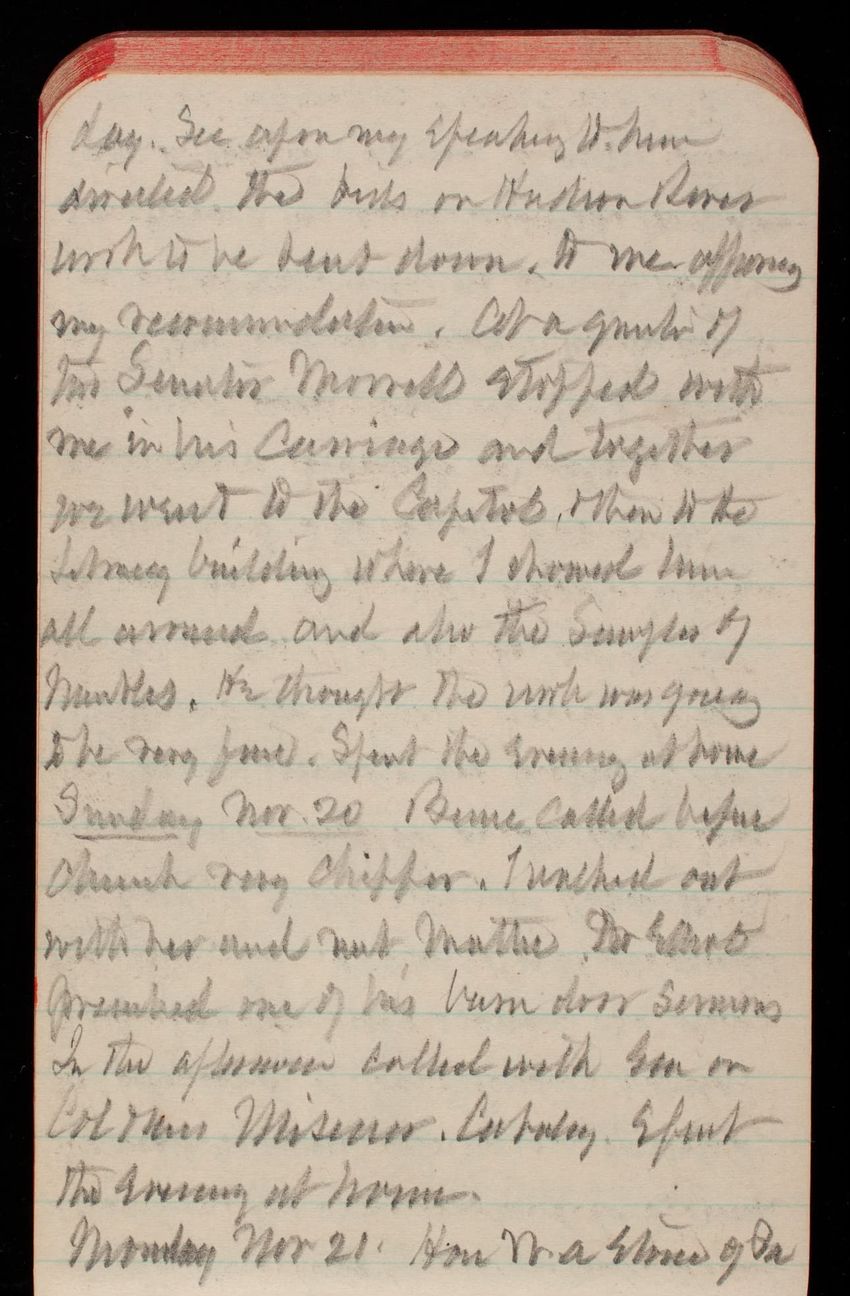 day. Sec. upon my speaking to him
directed the bids on Hudson River
work to be sent down, to me approving
my recommendation. At a quarter of
two Senator Morrill stopped with
me in his Carriage and together
we went to the Capitol, & then to the
Library building where I showed him
all around and also the Samples of
Mantles. He thought the work was going
to be very fine. Spent the evening at home
Sunday Nov. 20 Bernie called before
Church very chipper. I walked out
with her and met Mattie. Dr Elliott
preached one of his barn door sermons
In the afternoon called with on
Col & Mrs Misener. Spent
the evening at home.
Monday Nov 21. Hon W. A Stone of Pa